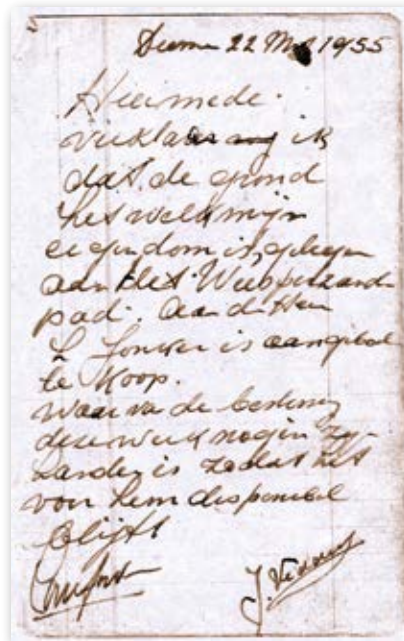 Diemen 22 Mrt 1955
Hiermede
verklaar ik
dat de grond
het welk mijn
eigendom is, gelegen
aan het Weesperzande
pad. Aan de Heer
L Jonker is aangebode
te koop.
Waar van de beslissing
deze week nog in zijn
handen is zodat het
voor hem disponibel
blijft